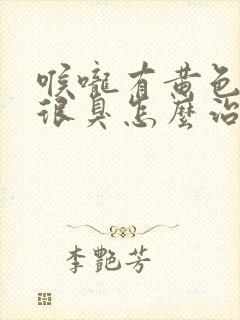 喉嚨有黄色
很臭怎麼治
李艷芳